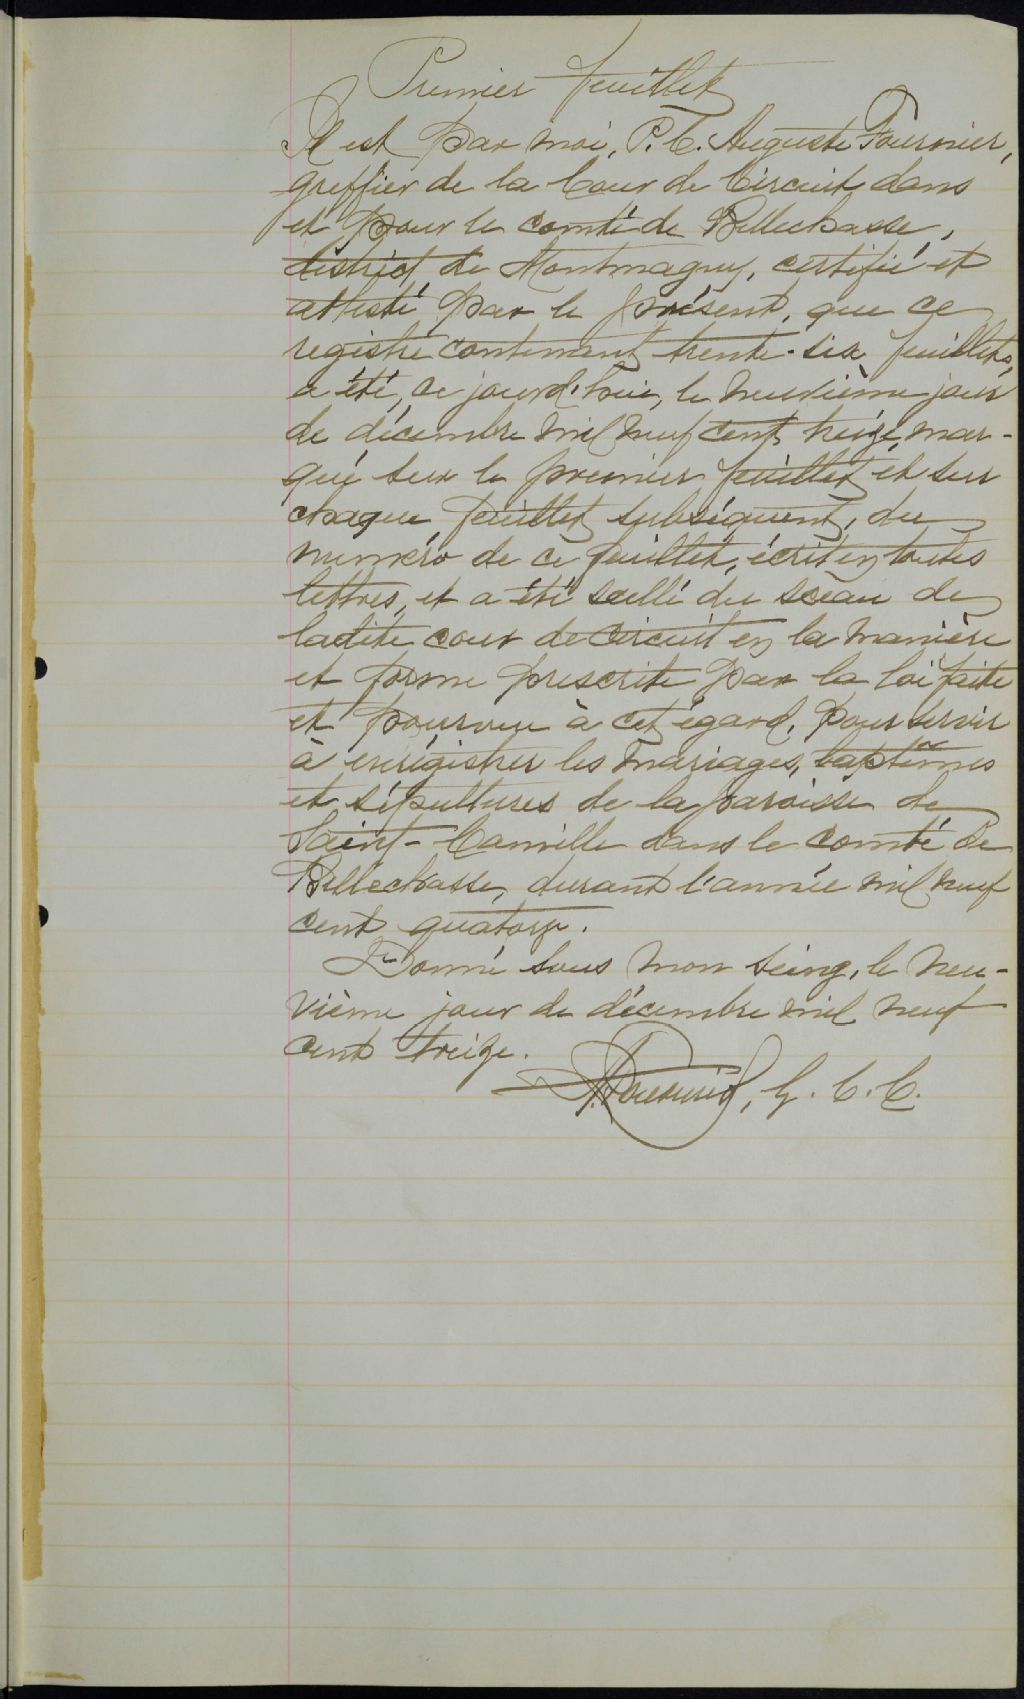 Premier feuillet
Il est par moi, P. C. Auguste Fournier,
greffier de la Cour de Circuit dans
et pour le comté de Bellechasse,
district de Montmagny, certifié et
attesté par le présent, que ce
registre contenant trente-six feuillets,
a été, ce jourd'hui, le neuvième jour
de décembre mil neuf cent treize, mar-
qué sur le premier feuillet et sur
chaque feuillet subséquent, du
numéro de ce feuillet, écrit en toutes
lettres, et a été scellé du sceau de
ladite cour de circuit en la manière
et forme prescrite par la loi faite
et pourvue à cet égard, pour servir
à enrégistrer les mariages, baptêmes
et sépultures de la paroisse de
Saint-Camille dans le comté de
Bellechasse, durant l'année mil neuf
cent quatorze.
Donné sous mon seing, le neu-
vième jour de décembre mil neuf
cent treize.
A. Fournier, G. C. C.